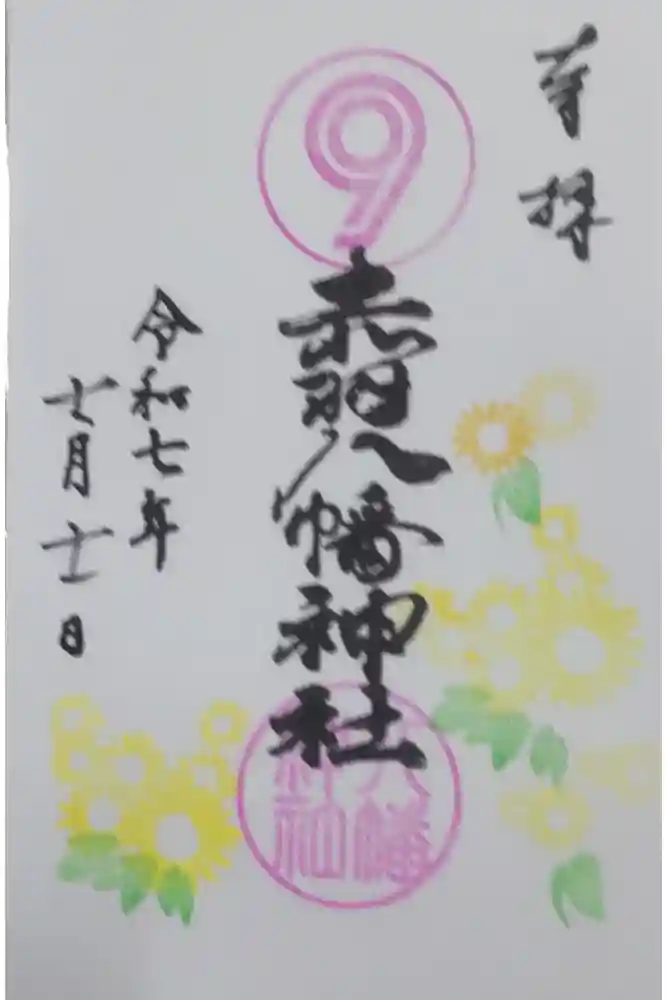 奉拝
9
赤羽八幡神社
令和七年
十一月十一日
八幡
神社